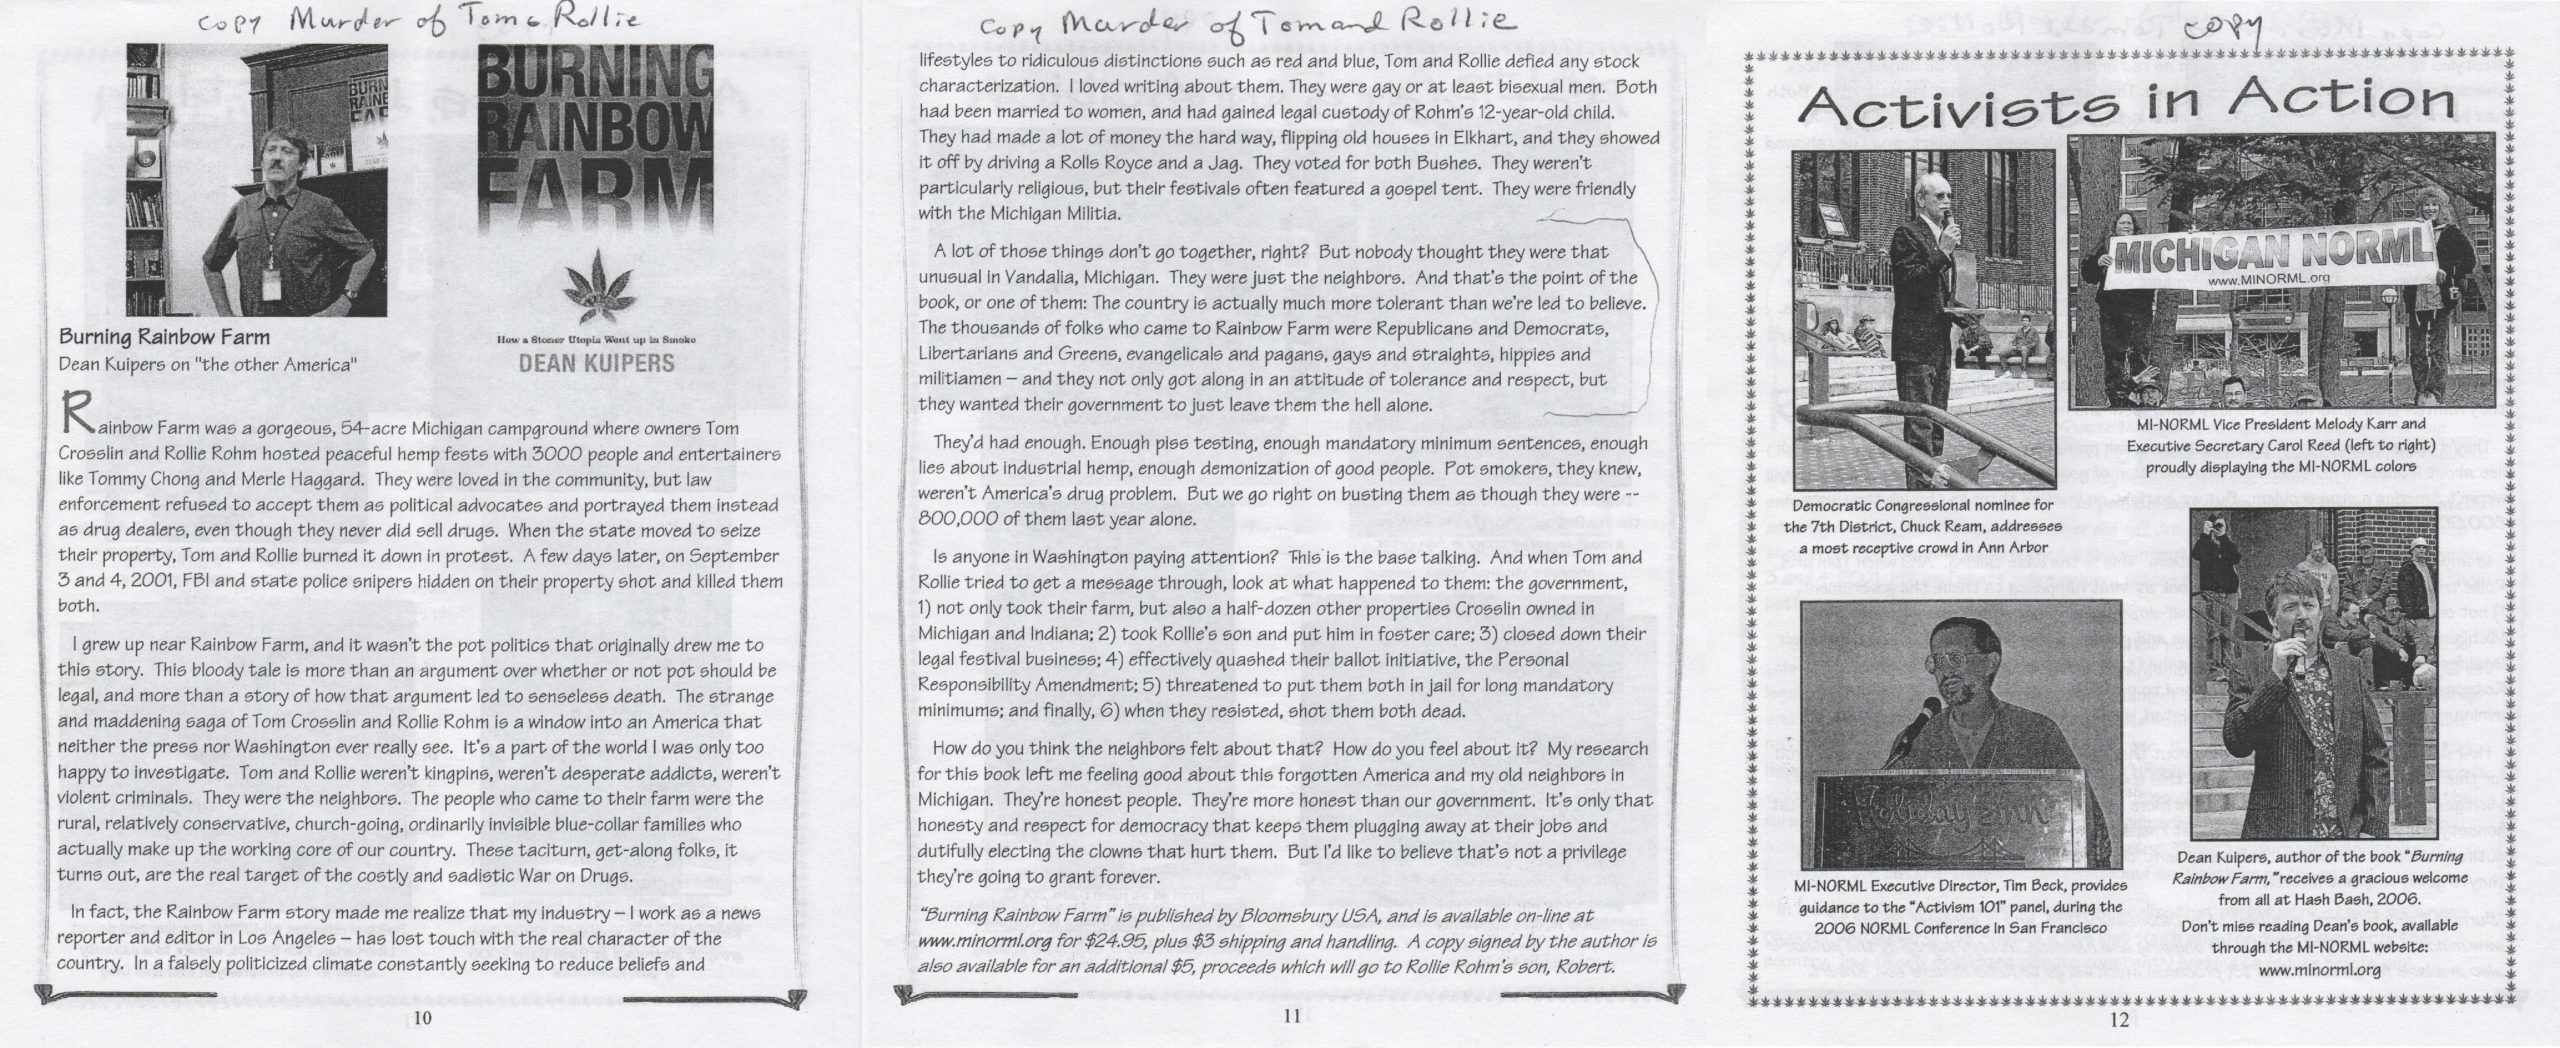 copy Murder of Tom & Rollie
BURNING
RAINBOW
FARM
How a Stoner Utopia Went up in Smoke
DEAN KUIPERS
Burning Rainbow Farm
Dean Kuipers on "the other America"
Rainbow Farm was a gorgeous, 54-acre Michigan campground where owners Tom
Crosslin and Rollie Rohm hosted peaceful hemp fests with 3000 people and entertainers
like Tommy Chong and Merle Haggard. They were loved in the community, but law
enforcement refused to accept them as political advocates and portrayed them instead
as drug dealers, even though they never did sell drugs. When the state moved to seize
their property, Tom and Rollie burned it down in protest. A few days later, on September
3 and 4, 2001, FBI and state police snipers hidden on their property shot and killed them
both.
I grew up near Rainbow Farm, and it wasn't the pot politics that originally drew me to
this story. This bloody tale is more than an argument over whether or not pot should be
legal, and more than a story of how that argument led to senseless death. The strange
and maddening saga of Tom Crosslin and Rollie Rohm is a window into an America that
neither the press nor Washington ever really see. It's a part of the world I was only too
happy to investigate. Tom and Rollie weren't kingpins, weren't desperate addicts, weren't
violent criminals. They were the neighbors. The people who came to their farm were the
rural, relatively conservative, church-going, ordinarily invisible blue-collar families who
actually make up the working core of our country. These taciturn, get-along folks, it
turns out, are the real target of the costly and sadistic War on Drugs.
In fact, the Rainbow Farm story made me realize that my industry – I work as a news
reporter and editor in Los Angeles – has lost touch with the real character of the
country. In a falsely politicized climate constantly seeking to reduce beliefs and
10
copy Murder of Tom and Rollie
lifestyles to ridiculous distinctions such as red and blue, Tom and Rollie defied any stock
characterization. I loved writing about them. They were gay or at least bisexual men. Both
had been married to women, and had gained legal custody of Rohm's 12-year-old child.
They had made a lot of money the hard way, flipping old houses in Elkhart, and they showed
it off by driving a Rolls Royce and a Jag. They voted for both Bushes. They weren't
particularly religious, but their festivals often featured a gospel tent. They were friendly
with the Michigan Militia.
A lot of those things don't go together, right? But nobody thought they were that
unusual in Vandalia, Michigan. They were just the neighbors. And that's the point of the
book, or one of them: The country is actually much more tolerant than we're led to believe.
The thousands of folks who came to Rainbow Farm were Republicans and Democrats,
Libertarians and Greens, evangelicals and pagans, gays and straights, hippies and
militiamen – and they not only got along in an attitude of tolerance and respect, but
they wanted their government to just leave them the hell alone.
They'd had enough. Enough piss testing, enough mandatory minimum sentences, enough
lies about industrial hemp, enough demonization of good people. Pot smokers, they knew,
weren't America's drug problem. But we go right on busting them as though they were --
800,000 of them last year alone.
Is anyone in Washington paying attention? This is the base talking. And when Tom and
Rollie tried to get a message through, look at what happened to them: the government,
1) not only took their farm, but also a half-dozen other properties Crosslin owned in
Michigan and Indiana; 2) took Rollie's son and put him in foster care; 3) closed down their
legal festival business; 4) effectively quashed their ballot initiative, the Personal
Responsibility Amendment; 5) threatened to put them both in jail for long mandatory
minimums; and finally, 6) when they resisted, shot them both dead.
How do you think the neighbors felt about that? How do you feel about it? My research
for this book left me feeling good about this forgotten America and my old neighbors in
Michigan. They're honest people. They're more honest than our government. It's only that
honesty and respect for democracy that keeps them plugging away at their jobs and
dutifully electing the clowns that hurt them. But I'd like to believe that's not a privilege
they're going to grant forever.
"Burning Rainbow Farm" is published by Bloomsbury USA, and is available on-line at
www.minorml.org for $24.95, plus $3 shipping and handling. A copy signed by the author is
also available for an additional $5, proceeds which will go to Rollie Rohm's son, Robert.
11
copy
Activists in Action
MICHIGAN NORML
www.MINORML.org
MI-NORML Vice President Melody Karr and
Executive Secretary Carol Reed (left to right)
proudly displaying the MI-NORML colors
Democratic Congressional nominee for
the 7th District, Chuck Ream, addresses
a most receptive crowd in Ann Arbor
Holiday Inn
MI-NORML Executive Director, Tim Beck, provides
guidance to the "Activism 101" panel, during the
2006 NORML Conference In San Francisco
Dean Kuipers, author of the book "Burning
Rainbow Farm," receives a gracious welcome
from all at Hash Bash, 2006.
Don't miss reading Dean's book, available
through the MI-NORML website:
www.minorml.org
12